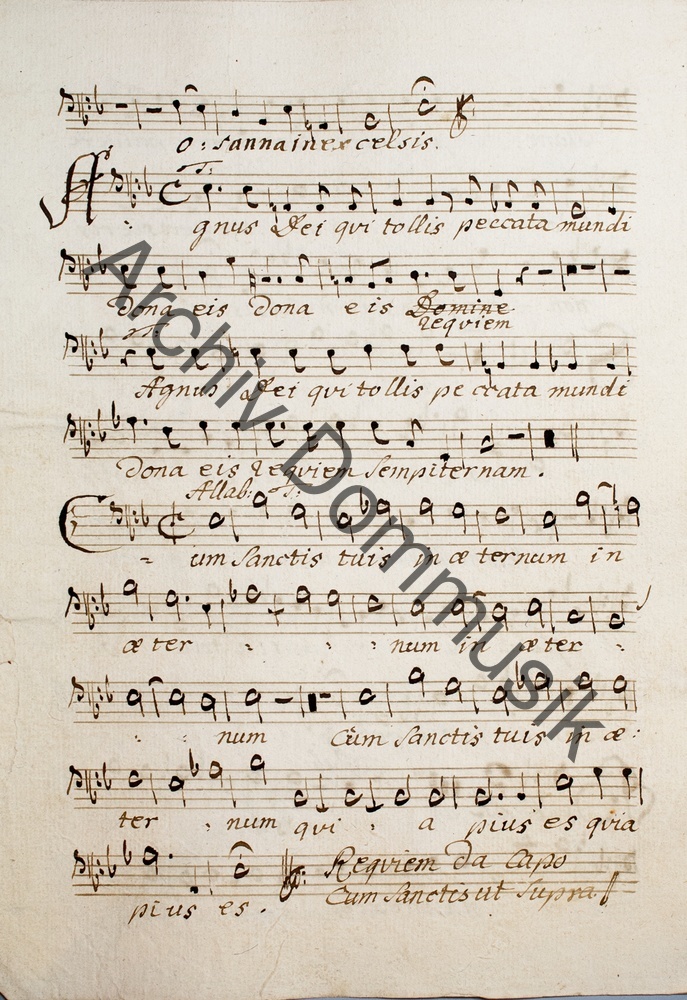 O: sanna in excelsis.
T:
Agnus Dei qui tollis peccata mundi
dona eis dona eis Domine
requiem
T:
Agnus Dei qui tollis peccata mundi
dona eis Requiem sempiternam.
Allab: T:
Cum Sanctis tuis in æternum in
æter - - - num in æter -
- - num Cum Sanctis tuis in æ:
ter - num qui - a pius es quia
pius es. Requiem da Capo
Cum Sanctis ut Supra
Archiv Dommusik